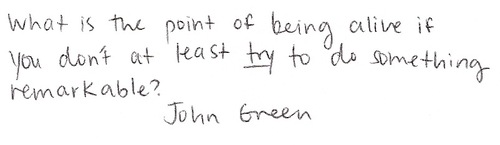 What is the point of being alive if
you don't at least try to do something
remarkable?
John Green